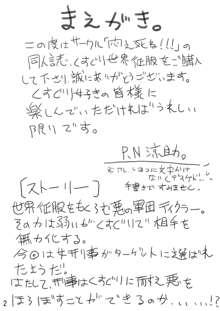 まえがき。
この度はサークル「悶え死ね!!!」の
同人誌、くすぐり世界征服をご購入
して下さり誠にありがとうございます。
くすぐり好きの皆様に
楽しんでいただければうれしい
限りです。
P.N 流助。
手書きですみません。
[ストーリー]
世界征服をもくろむ悪の軍団ティクラー。
その力は弱いがくすぐりで相手を
無力化する。
今回は女刑事がターゲットに選ばれ
たようだ。
はたして、刑事はくすぐりに耐え悪を
ほろぼすことができるのか・・・・!?
2